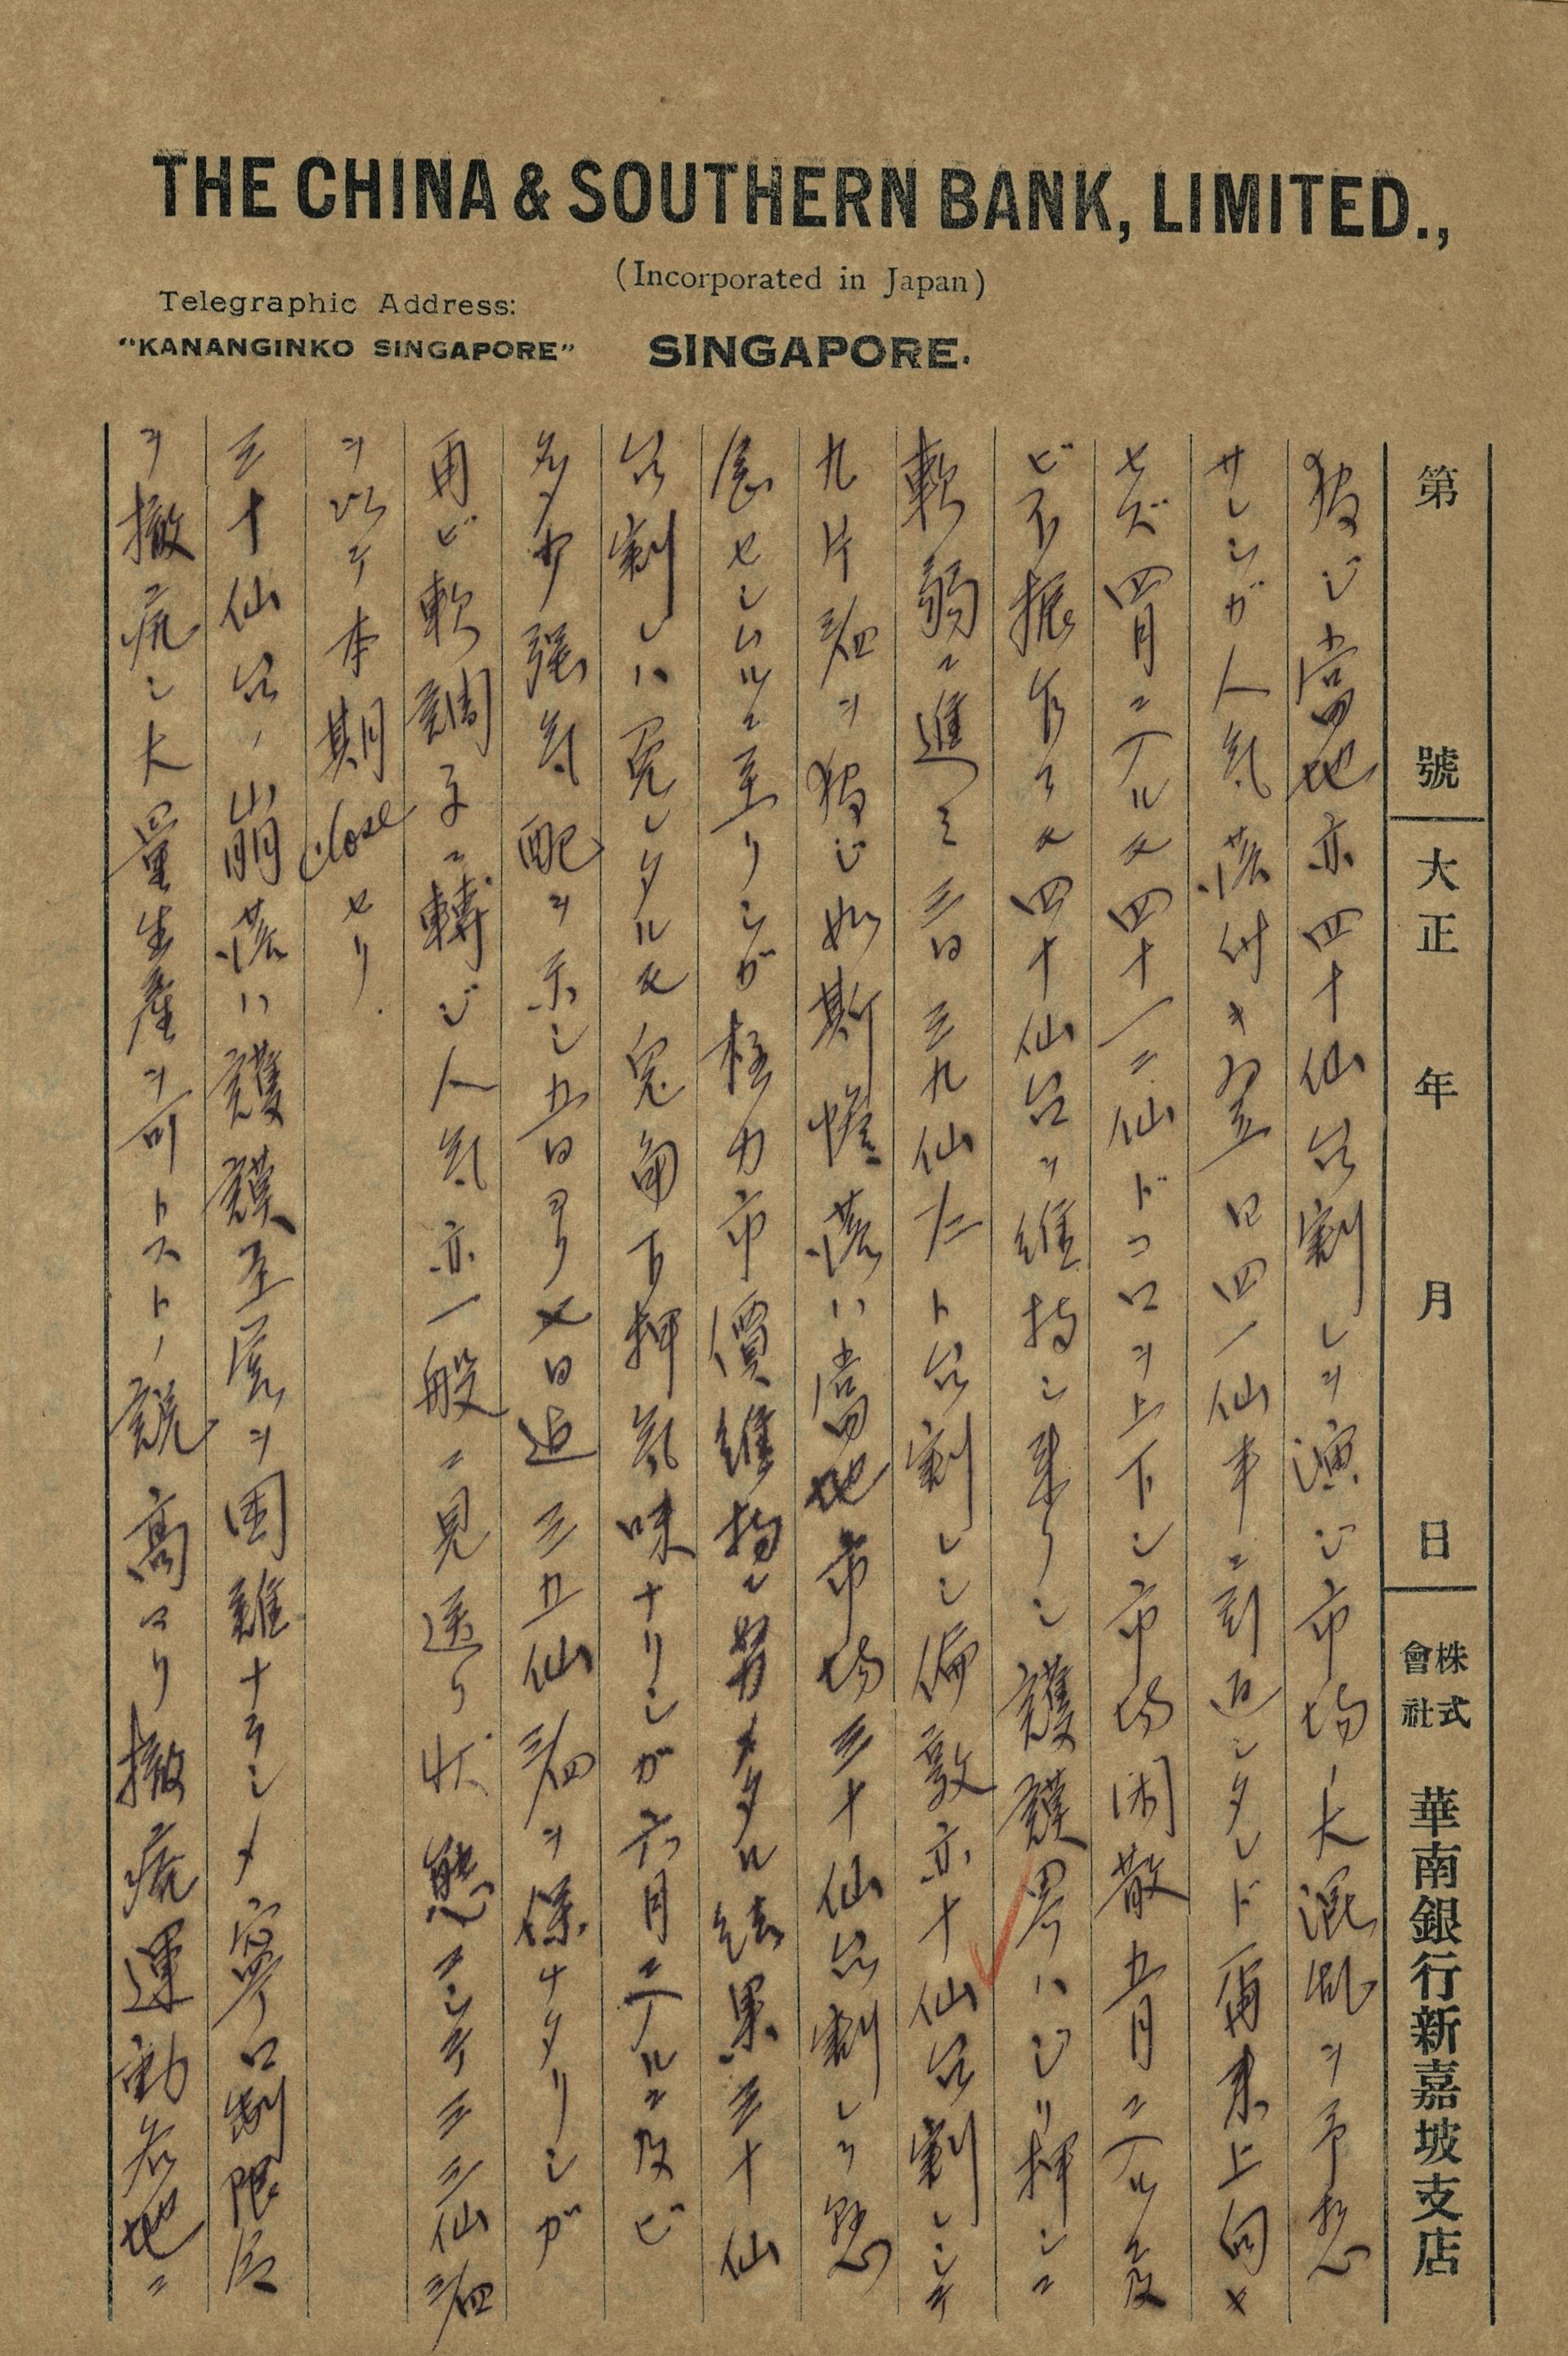 THE CHINA & SOUTHERN BANK, LIMITED.,
(Incorporated in Japan)
Telegraphic Address:
"KANANGINKO SINGAPORE"
SINGAPORE.
第 號 大正 年 月 日 株式會社 華南銀行新嘉坡支店
發シ當地亦四十仙台割レヲ演ジ市場ノ大混亂ヲ予想
サレシガ人気落付キ翌日四一仙半ニ引返シタレド再来上向セ
セズ四月ニ入ルモ四十一二仙ドコロヲ上下シ市場閑散五月ニ入ルモ及
ビ不振乍ラモ四十仙台ヲ維持シ来リシ護謨界ハジリ押シニ
軟弱ニ進ミ三日三九仙ト台割レシ倫敦亦十仙台割レシテ
九片3/4ヲ発ジ如斯惨落ハ當地市場三十仙台割レヲ懸
念セシムルニ至リシガ極力市價維持ニ努メタル結果三十仙
台割レハ免レタルモ兎角下押気味ナリシガ六月ニ入ルニ及ビ
多少強気配ヲ示シ五日ヨリ七日迄三五仙3/4ヲ保チタリシガ
再ビ軟調子ニ轉ジ人気亦一般ニ見送リ状態ニシテ三三仙3/4
ヲ以テ本期Closeセリ.
三十仙台ノ崩落ハ護謨至營ヲ困難ナラシメ寧ロ制限
ヲ撤廃シ大量生産ヲ可トストノ説高マリ撤廃運動各地ニ